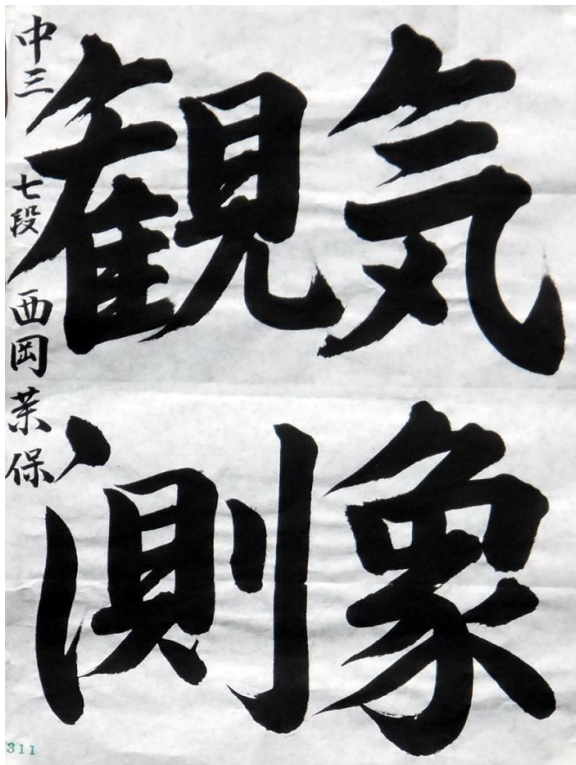 気象
観測
中三 七段 西岡茉保
311